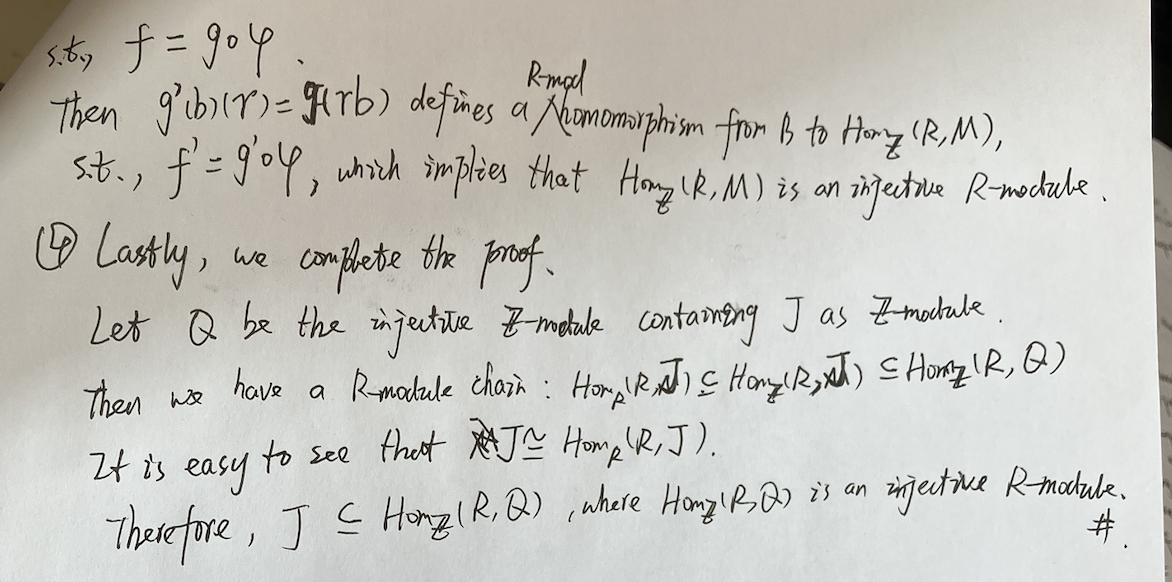 s.t., f = g∘φ.
Then g'(b)(r) = g(rb) defines a R-mod homomorphism from B to Hom_ℤ(R, M),
s.t., f' = g'∘φ, which implies that Hom_ℤ(R, M) is an injective R-module.
④ Lastly, we complete the proof.
Let Q be the injective ℤ-module containing J as ℤ-module.
Then we have a R-module chain: Hom_R(R, J) ⊆ Hom_ℤ(R, J) ⊆ Hom_ℤ(R, Q)
It is easy to see that J ≅ Hom_R(R, J).
Therefore, J ⊆ Hom_ℤ(R, Q), where Hom_ℤ(R, Q) is an injective R-module.
#.